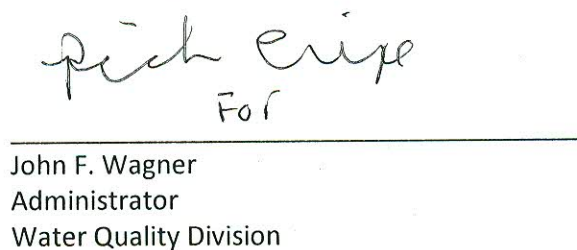 Rich Cripe
For
John F. Wagner
Administrator
Water Quality Division